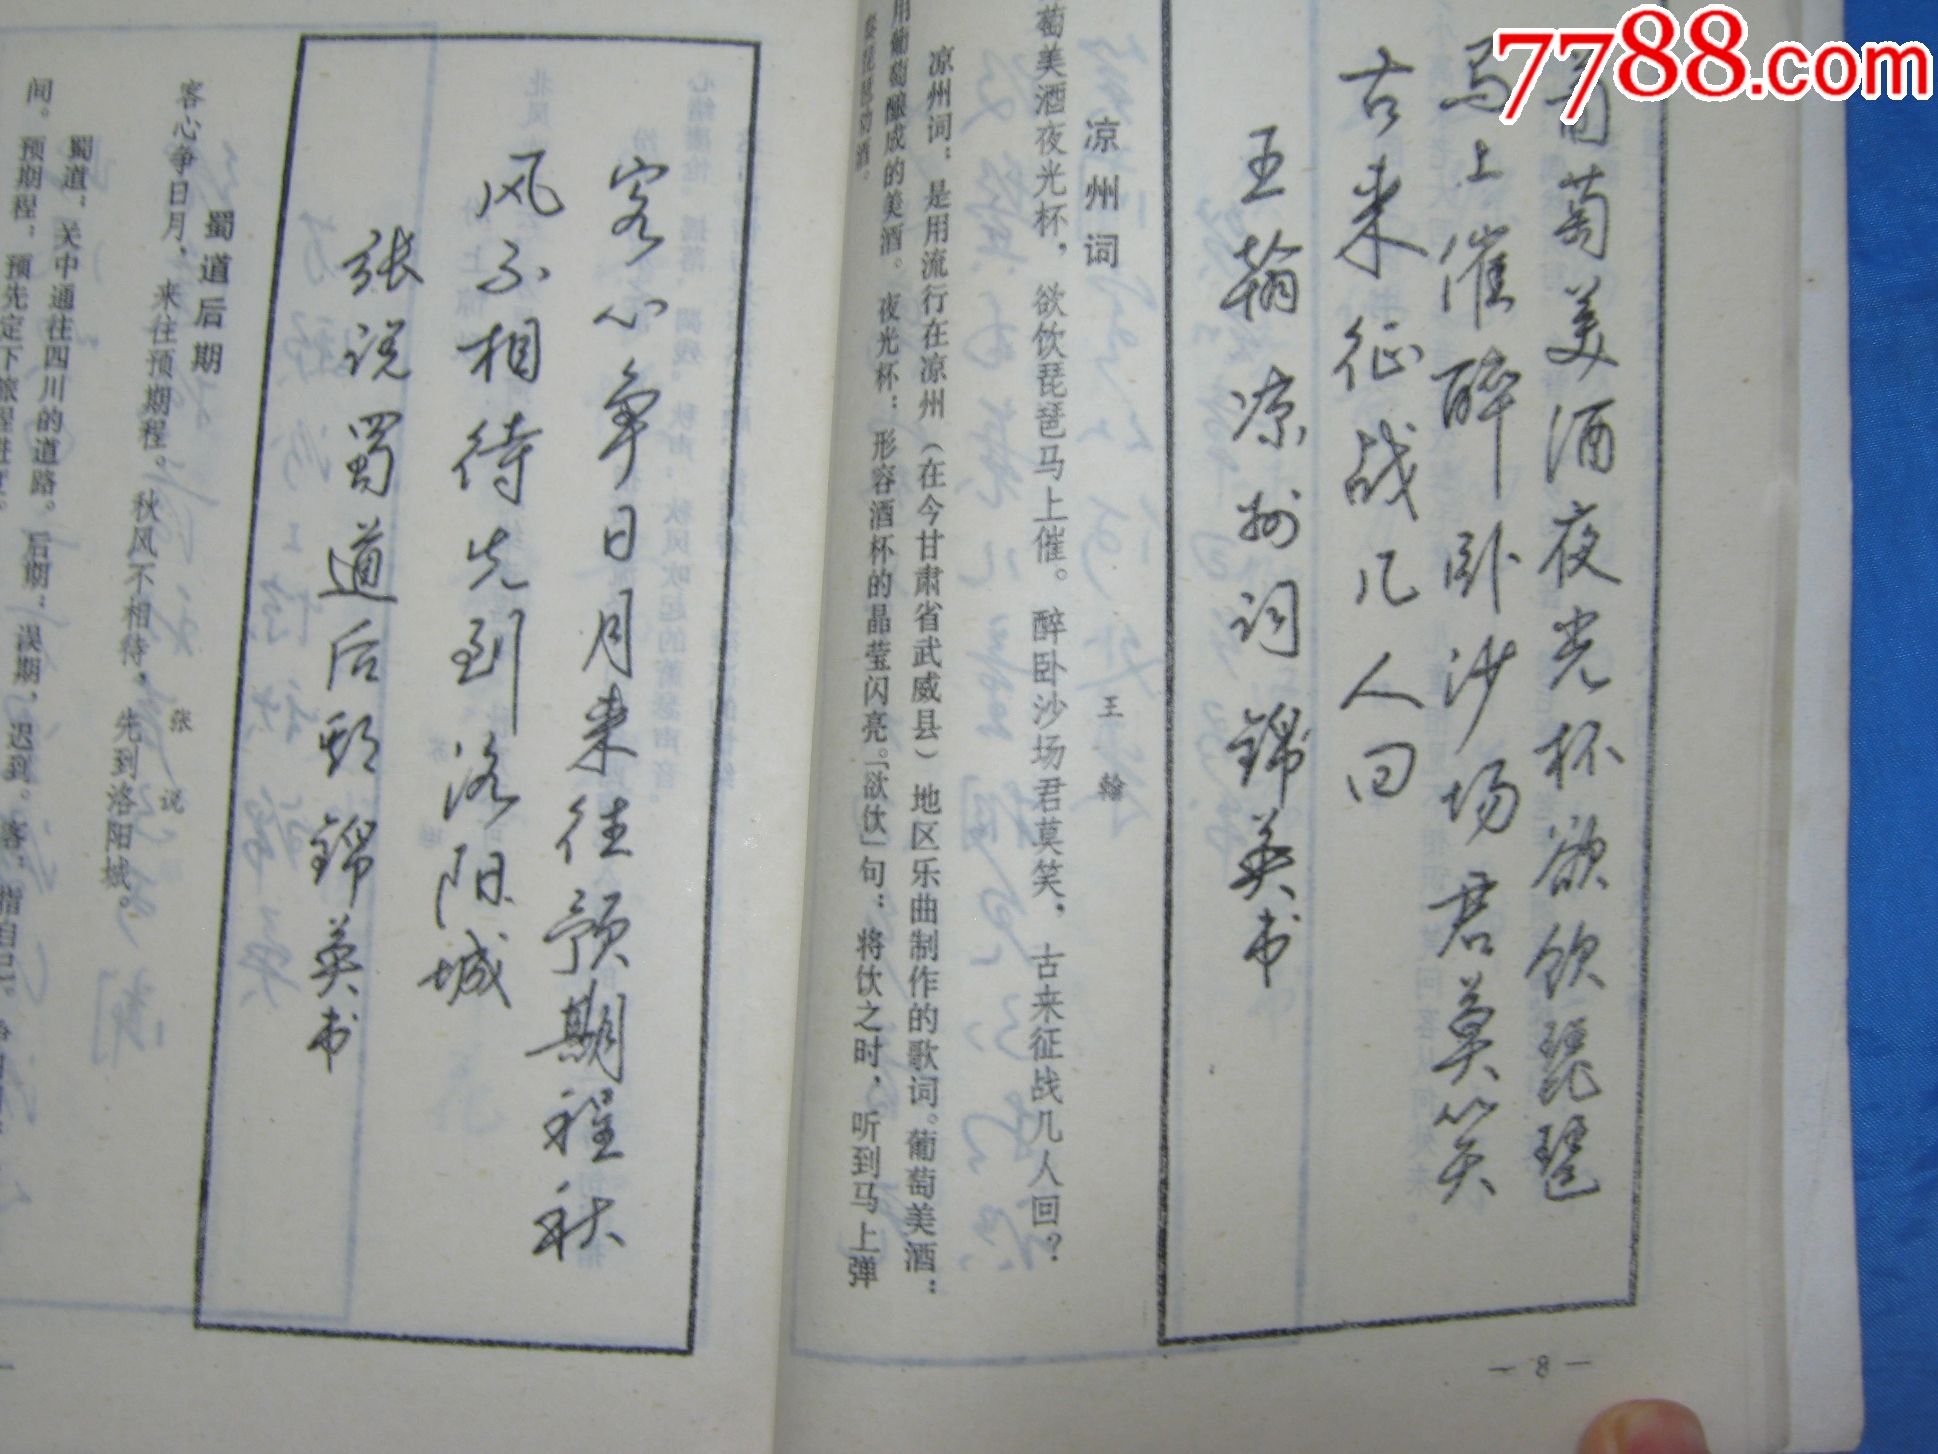 7788.com
葡萄美酒夜光杯欲饮琵琶
马上催醉卧沙场君莫笑
古来征战几人回
王翰凉州词锦英书
凉州词
王翰
萄美酒夜光杯，欲饮琵琶马上催。醉卧沙场君莫笑，古来征战几人回？
凉州词：是用流行在凉州（在今甘肃省武威县）地区乐曲制作的歌词。葡萄美酒：
用葡萄酿成的美酒。夜光杯：形容酒杯的晶莹闪亮。「欲饮」句：将饮之时，听到马上弹
奏琵琶劝酒。
—8—
客心争日月来往预期程秋
风不相待先到洛阳城
张说蜀道后期锦英书
蜀道后期
张说
客心争日月，来往预期程。秋风不相待，先到洛阳城。
蜀道：关中通往四川的道路。后期：误期，迟到。客：指自己。争日
间。预期程：预先定下旅程进度。